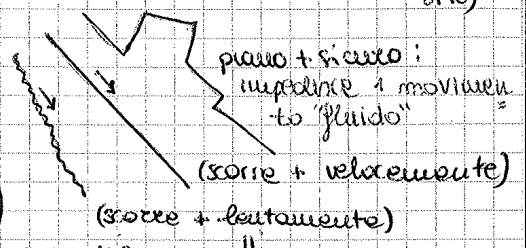 piano + sicuro :
impedisce 1 movimen
to "fluido"
(scorre + velocemente)
(scorre + lentamente)